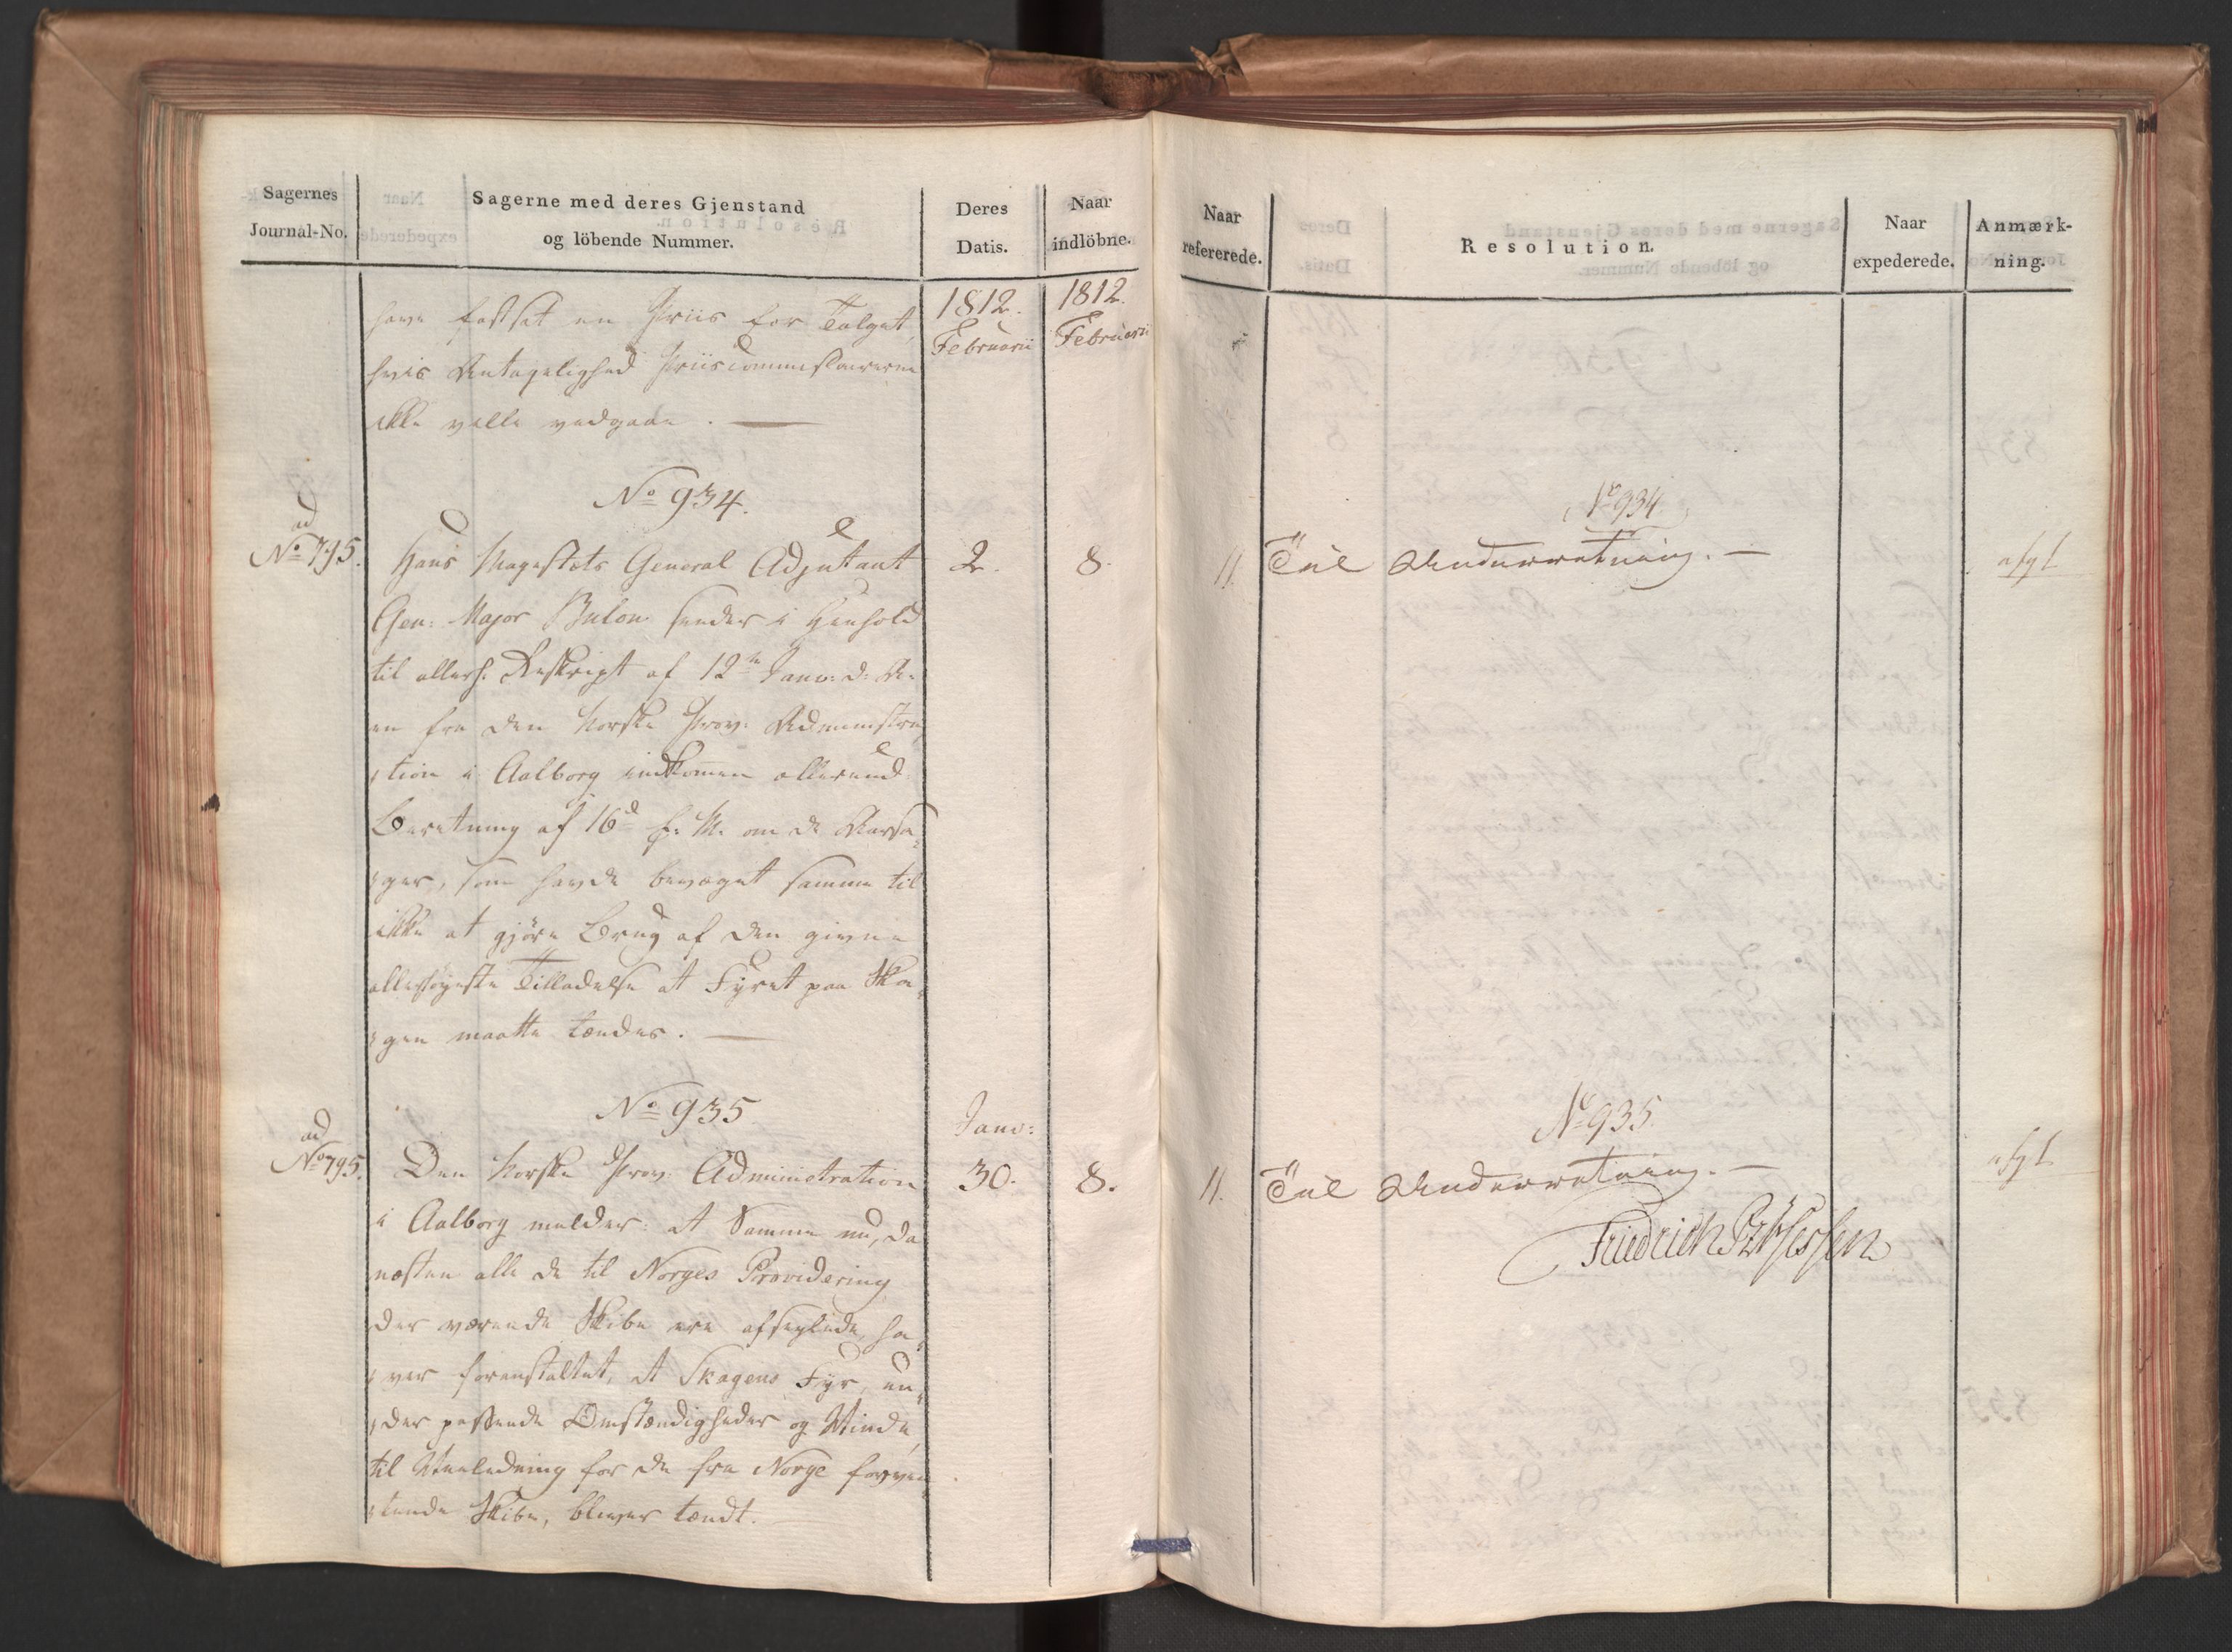 Sagernes
Journal-No.
Sagerne med deres Gjenstand
og löbende Nummer.
Deres
Datis.
Naar
indlöbne.
have fastsat en Priis for Talget,
hvis Antagelighed Priiscommissairerne
ikke ville vedgaae. —
1812.
Februarii
1812.
Februarii
No 934.
ad
No 795.
Hans Majestæts General Adjutant
Gen: Major Bülow sender i Henhold
til allerh: Reskript af 12te Janu: d: A:
en fra den Norske Prov: Administra¸
¸tion i Aalborg indkommen allerund:
Beretning af 16d f: M: om de Aarsa¸
¸ger, som havde bevæget samme til
ikke at gjöre Brug af den givne
allerhöyeste Tilladelse at Fyret paa Ska¸
¸gen maatte tændes. —
2.
8.
No 935
ad
No 795.
Den Norske Prov: Administration
i Aalborg melder: at Samme nu, da
næsten alle de til Norges Providering
der værende Skibe ere afseylede, ha¸
¸ver foranstaltet, at Skagens Fyr, un¸
¸der passende Omstændigheder og Vinde,
til Veiledning for de fra Norge forven¸
¸tende Skibe, bliver tændt.
Janu:
30.
8.
Naar
refererede.
Resolution.
Naar
expederede.
Anmærk-
ning.
No 934
11.
Til Underretning. —
afgl
No 935.
11.
Til Underretning. —
afgl
Friedrich